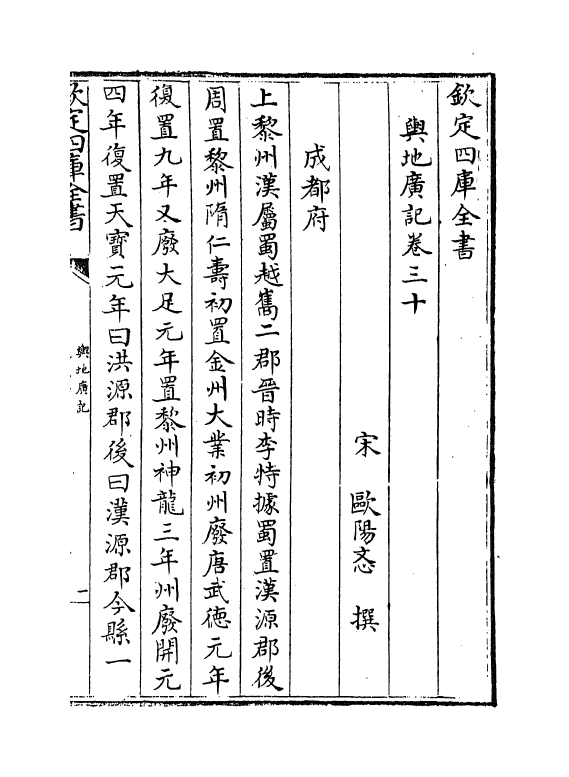 欽定四庫全書
輿地廣記卷三十
宋 歐陽忞 撰
成都府
上黎州漢屬蜀越嶲二郡晉時李特據蜀置漢源郡後
周置黎州隋仁壽初置金州大業初州廢唐武德元年
復置九年又廢大足元年置黎州神龍三年州廢開元
四年復置天寶元年曰洪源郡後曰漢源郡今縣一
欽定四庫全書
輿地廣記